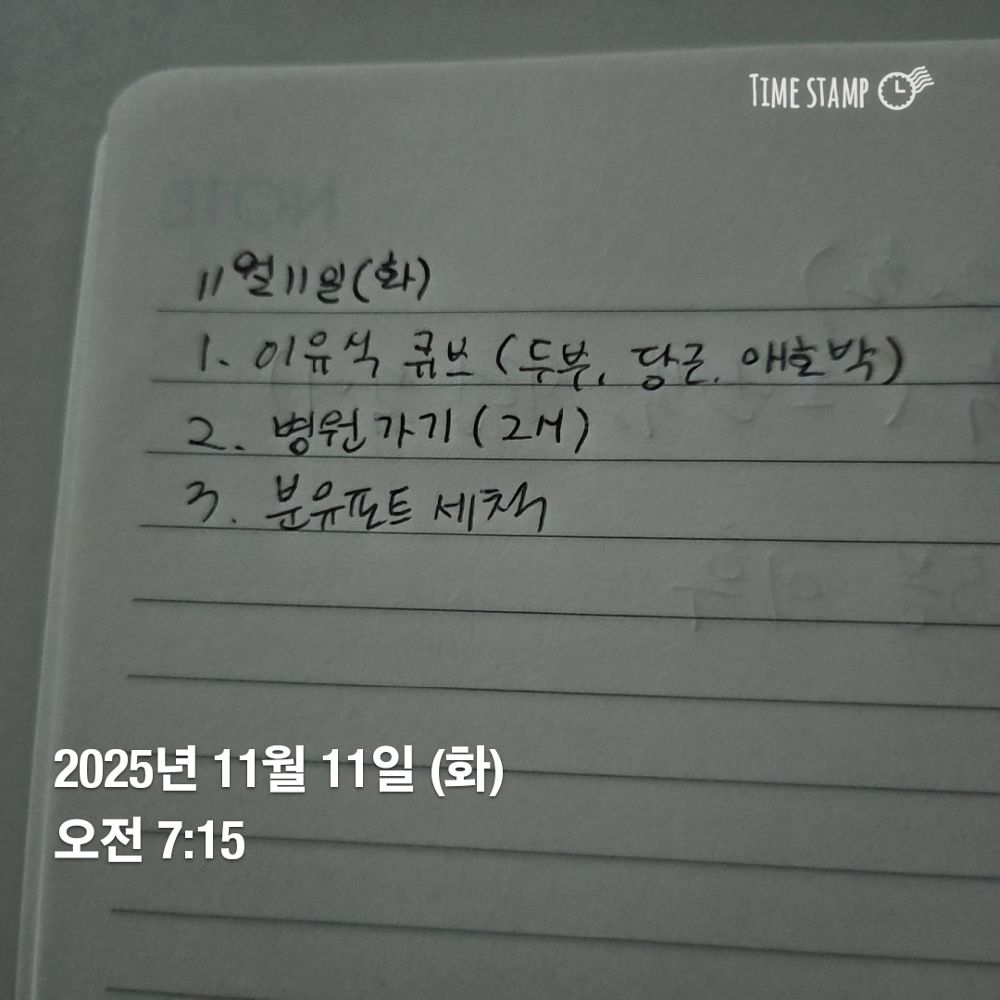 TIME STAMP
NOTE
11월 11일(화)
1. 이유식 큐브 (두부, 당근, 애호박)
2. 병원가기 (2시)
3. 분유포트 세척
2025년 11월 11일 (화)
오전 7:15